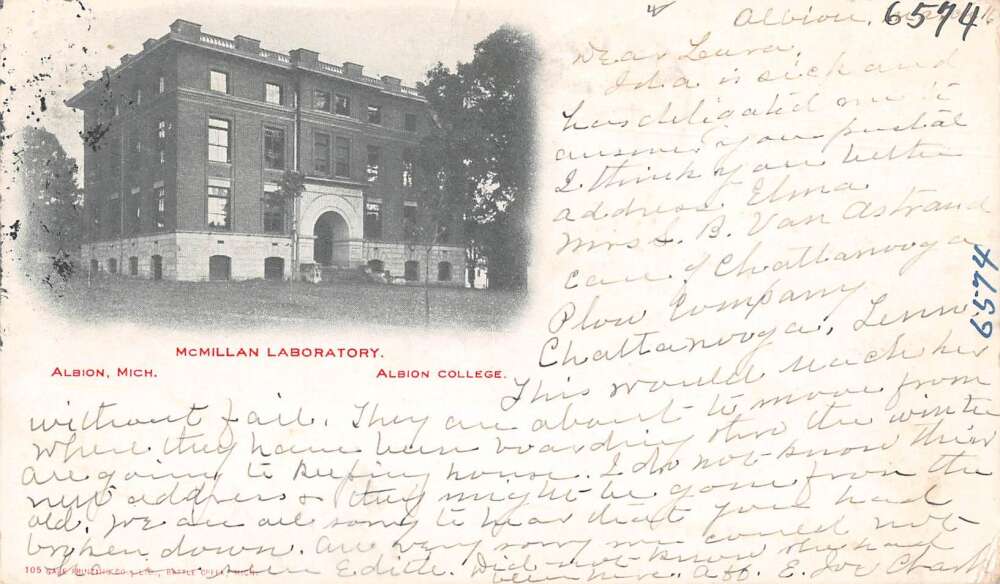 Albion,
6574
Dear Laura,
Ida is sick and
has deligated me to
answer your postal
I think you better
address Elma
Mrs L. B. Van Astrand
care of Chattanooga
Plow Company
Chattanooga, Tenn
6574
McMILLAN LABORATORY.
ALBION, MICH.
ALBION COLLEGE.
This would reach her
without fail. They are about to move from
where they have been boarding thro the winter
are going to keeping house. I do not know their
new address & they might be gone from the
old. We are all sorry to hear that you had
broken down. Are very sorry we could not
Edith. Did not know she had
been here. Aff. E.
105